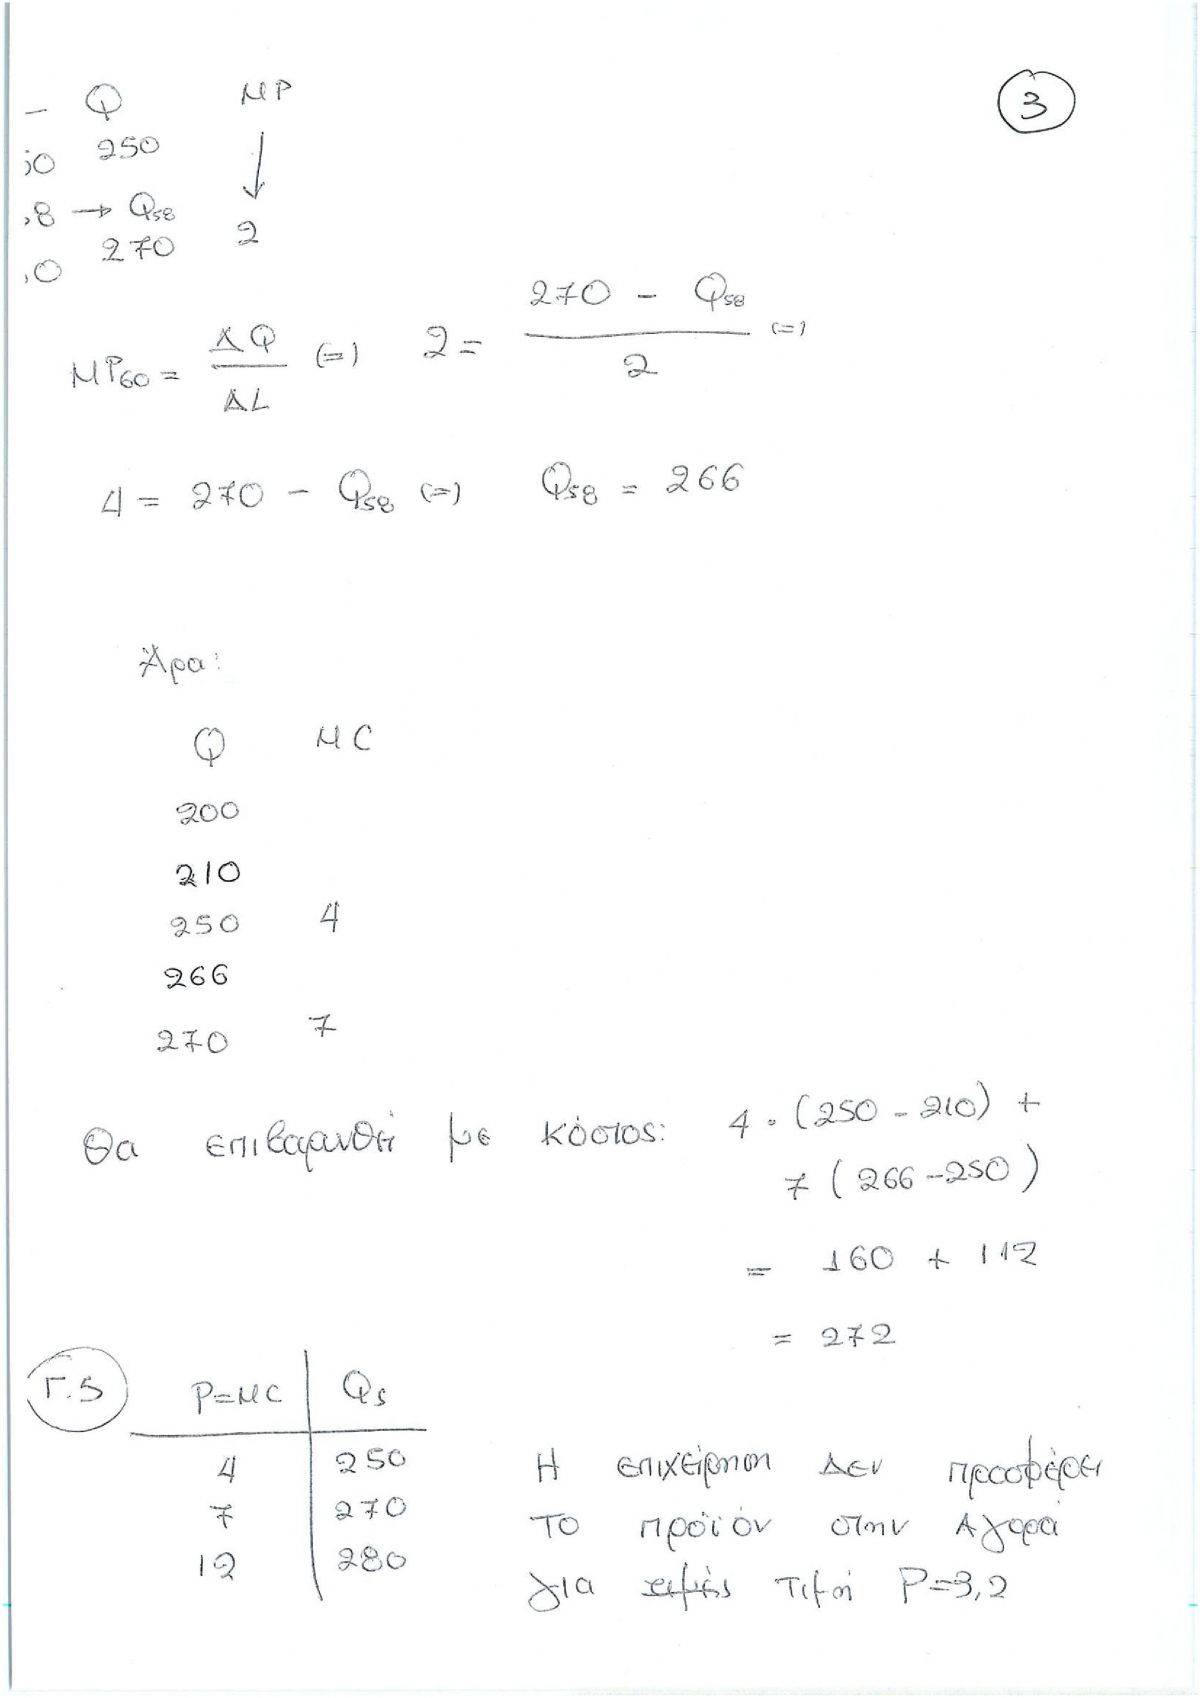 3
— Q MP
50 250
,8 → Q58
,0 270 2
MP60 = ΔQ/ΔL (=) 2 = 270 - Q58/2 (=)
4 = 270 - Q58 (=) Q58 = 266
Άρα:
Q MC
200
210
250 4
266
270 7
Θα επιβαρυνθεί με κόστος: 4 · (250 - 210) +
7 (266 - 250)
= 160 + 112
= 272
Γ.5 P=MC Qs
4 250
7 270
12 280
Η επιχείρηση Δεν προσφέρει
Το προϊόν στην Αγορά
για τιμές τιμή P=3,2